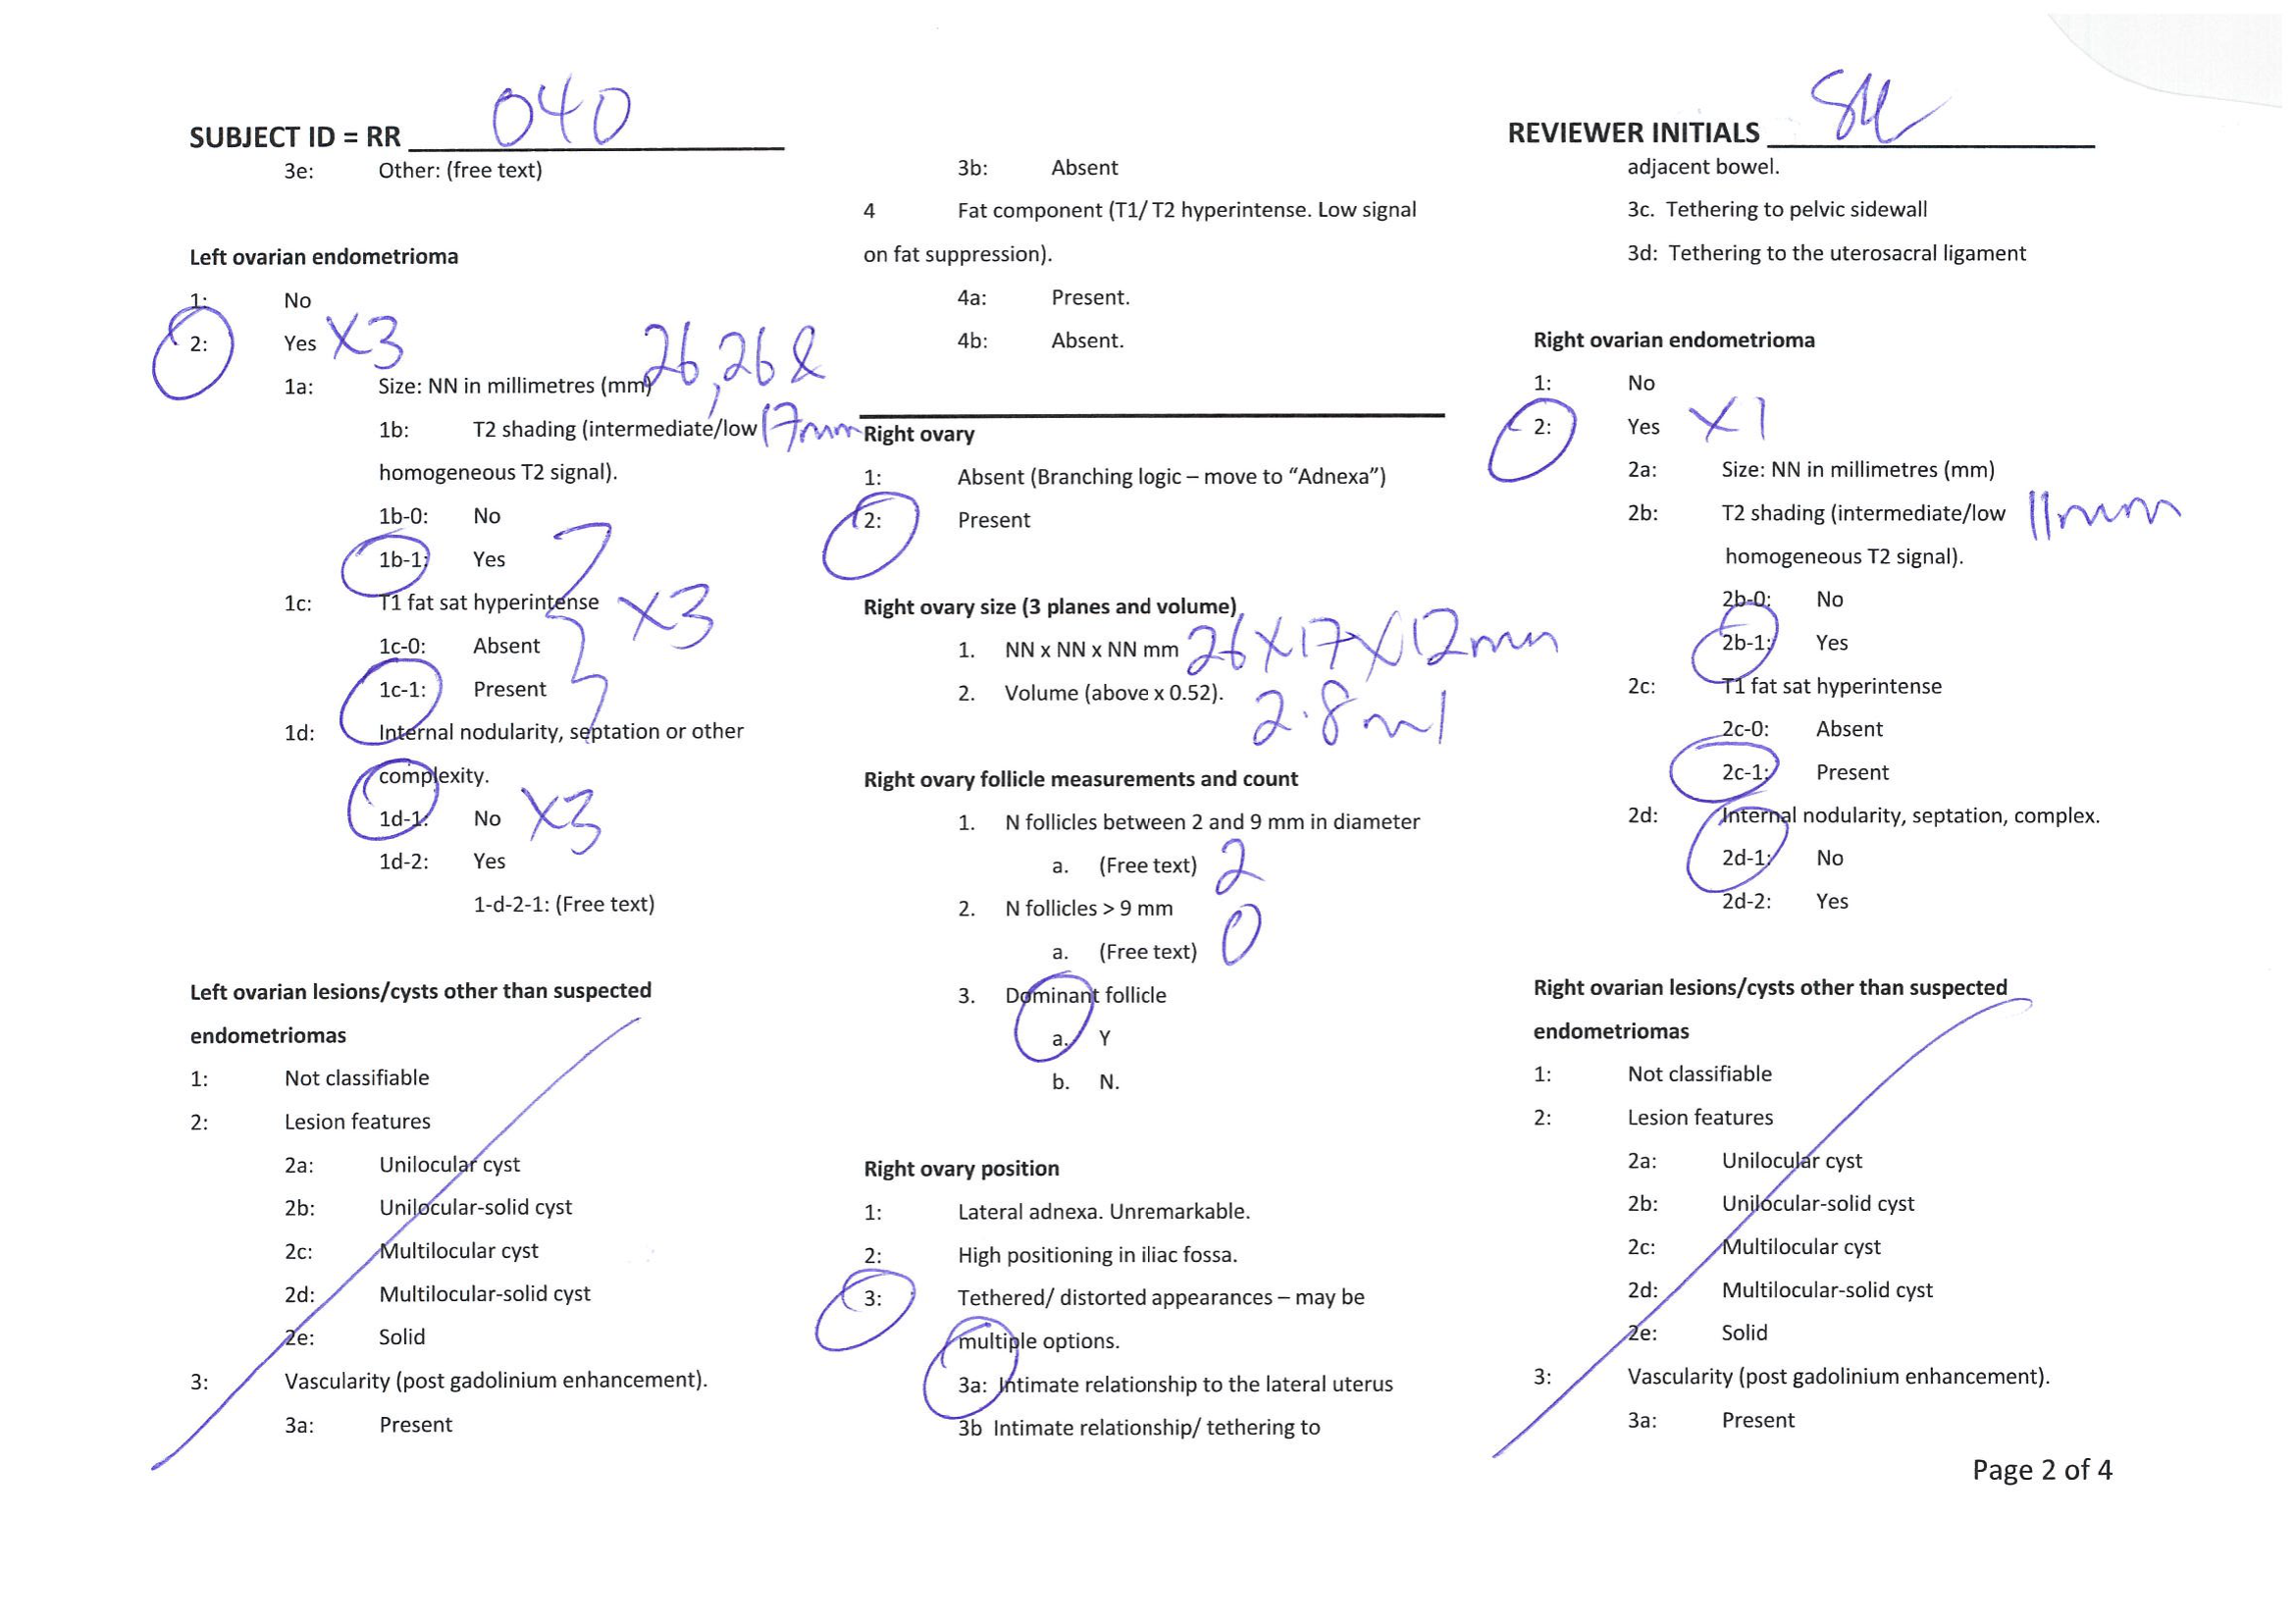 SUBJECT ID = RR 040
3e: Other: (free text)
Left ovarian endometrioma
1: No
2: Yes X3
1a: Size: NN in millimetres (mm) 26, 26 &
1b: T2 shading (intermediate/low 17mm
homogeneous T2 signal).
1b-0: No
1b-1: Yes
1c: T1 fat sat hyperintense X3
1c-0: Absent
1c-1: Present
1d: Internal nodularity, septation or other
complexity.
1d-1: No X3
1d-2: Yes
1-d-2-1: (Free text)
Left ovarian lesions/cysts other than suspected
endometriomas
1: Not classifiable
2: Lesion features
2a: Unilocular cyst
2b: Unilocular-solid cyst
2c: Multilocular cyst
2d: Multilocular-solid cyst
2e: Solid
3: Vascularity (post gadolinium enhancement).
3a: Present
3b: Absent
4 Fat component (T1/ T2 hyperintense. Low signal
on fat suppression).
4a: Present.
4b: Absent.
Right ovary
1: Absent (Branching logic – move to “Adnexa”)
2: Present
Right ovary size (3 planes and volume)
1. NN x NN x NN mm 26X17X12mm
2. Volume (above x 0.52). 2.8ml
Right ovary follicle measurements and count
1. N follicles between 2 and 9 mm in diameter
a. (Free text) 2
2. N follicles > 9 mm
a. (Free text) 0
3. Dominant follicle
a. Y
b. N.
Right ovary position
1: Lateral adnexa. Unremarkable.
2: High positioning in iliac fossa.
3: Tethered/ distorted appearances – may be
multiple options.
3a: Intimate relationship to the lateral uterus
3b Intimate relationship/ tethering to
REVIEWER INITIALS
adjacent bowel.
3c. Tethering to pelvic sidewall
3d: Tethering to the uterosacral ligament
Right ovarian endometrioma
1: No
2: Yes X1
2a: Size: NN in millimetres (mm)
2b: T2 shading (intermediate/low 11mm
homogeneous T2 signal).
2b-0: No
2b-1: Yes
2c: T1 fat sat hyperintense
2c-0: Absent
2c-1: Present
2d: Internal nodularity, septation, complex.
2d-1: No
2d-2: Yes
Right ovarian lesions/cysts other than suspected
endometriomas
1: Not classifiable
2: Lesion features
2a: Unilocular cyst
2b: Unilocular-solid cyst
2c: Multilocular cyst
2d: Multilocular-solid cyst
2e: Solid
3: Vascularity (post gadolinium enhancement).
3a: Present
Page 2 of 4